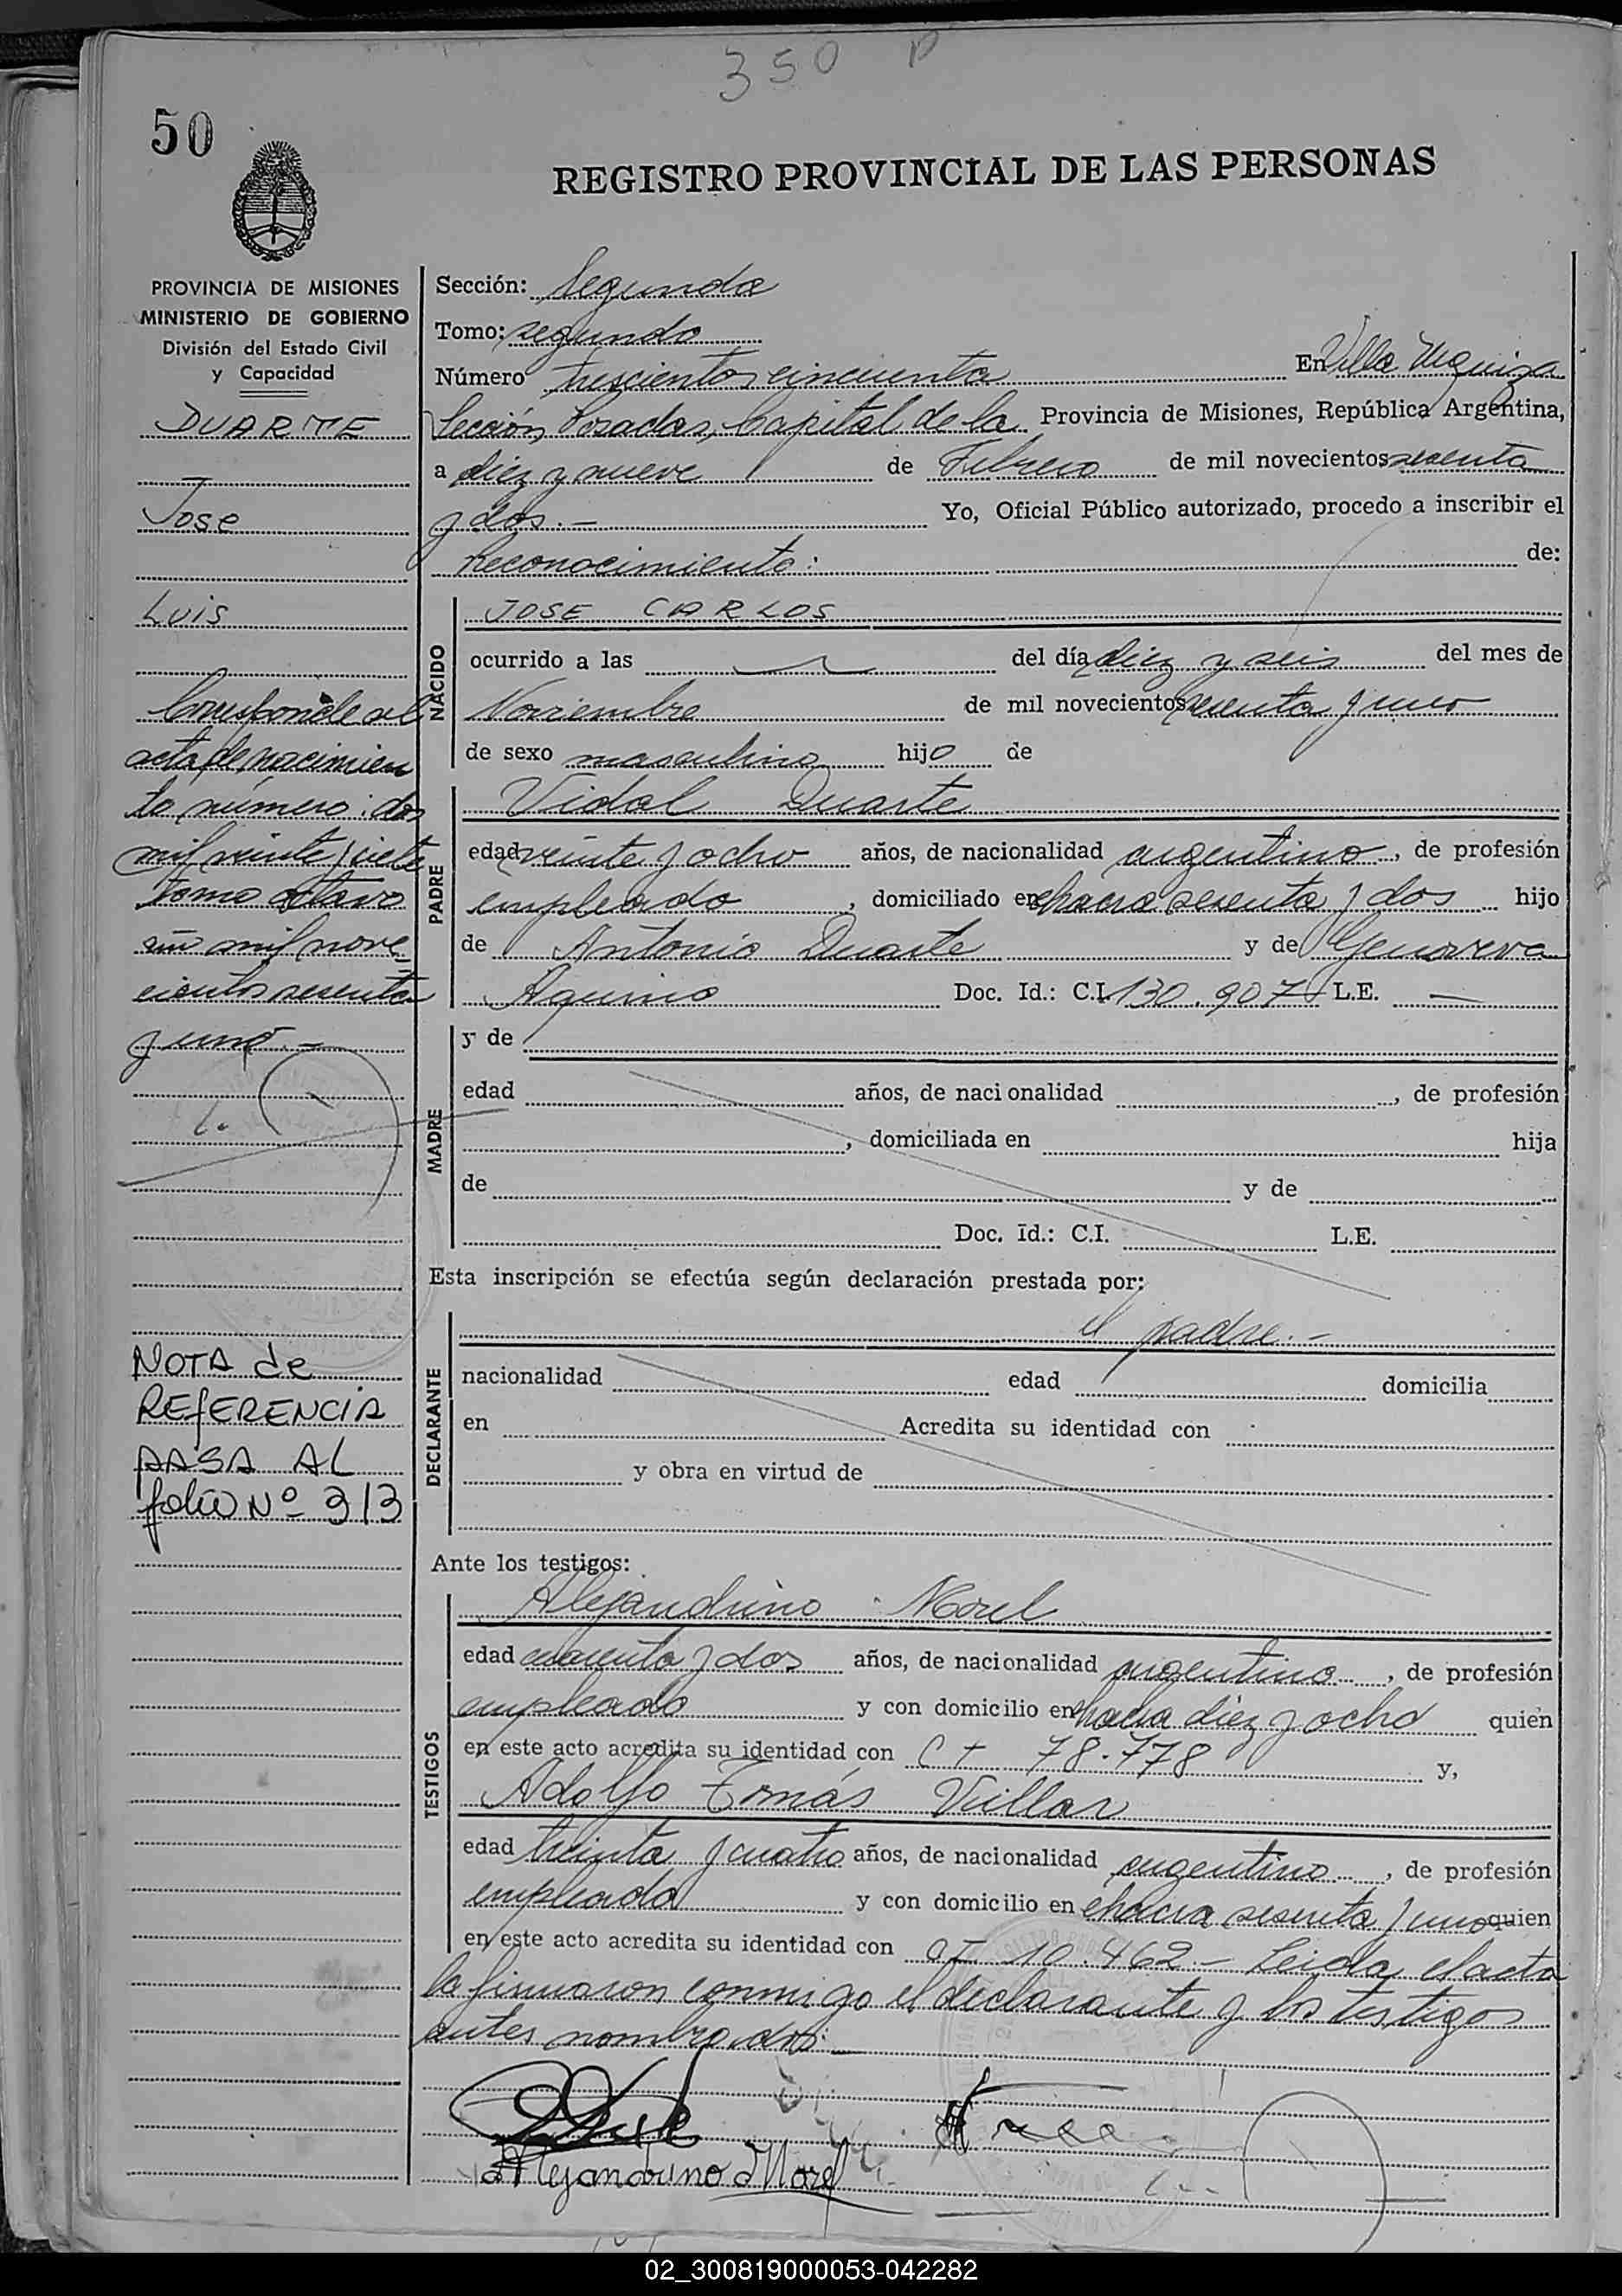 350 P
50
REGISTRO PROVINCIAL DE LAS PERSONAS
PROVINCIA DE MISIONES
MINISTERIO DE GOBIERNO
División del Estado Civil
y Capacidad
DUARTE
Jose
Luis
Corresponde al
acta de nacimien
to número: dos
mil veinte y siete
tomo octavo
año mil nove
cientos sesenta
y uno.-
NOTA de
REFERENCIA
PASA AL
folio Nº 313
Sección: Segunda
Tomo: segundo
Número trescientos cincuenta En Villa Urquiza
Sección Posadas, Capital de la Provincia de Misiones, República Argentina,
a diez y nueve de Febrero de mil novecientos sesenta
y dos.- Yo, Oficial Público autorizado, procedo a inscribir el
Reconocimiento: de:
NACIDO
JOSE CARLOS
ocurrido a las del día diez y seis del mes de
Noviembre de mil novecientos sesenta y uno
de sexo masculino hijo de
PADRE
Vidal Duarte
edad veinte y ocho años, de nacionalidad argentino, de profesión
empleado, domiciliado en chacra sesenta y dos hijo
de Antonio Duarte y de Genoveva
Aquino Doc. Id.: C.I. 130.907 L.E. —
MADRE
y de
edad años, de nacionalidad , de profesión
, domiciliada en hija
de y de
Doc. Id.: C.I. L.E.
Esta inscripción se efectúa según declaración prestada por:
DECLARANTE
el padre.-
nacionalidad edad domicilia
en Acredita su identidad con
y obra en virtud de
Ante los testigos:
TESTIGOS
Alejandrino Morel
edad cuarenta y dos años, de nacionalidad argentino, de profesión
empleado y con domicilio en chacra diez y ocho quien
en este acto acredita su identidad con CI 78.778 y,
Adolfo Tomás Villar
edad treinta y cuatro años, de nacionalidad argentino, de profesión
empleado y con domicilio en chacra sesenta y uno quien
en este acto acredita su identidad con CI 10.462- Leida el acta
la firmaron conmigo el declarante y los testigos
antes nombrados.-
Alejandrino Morel
02_300819000053-042282